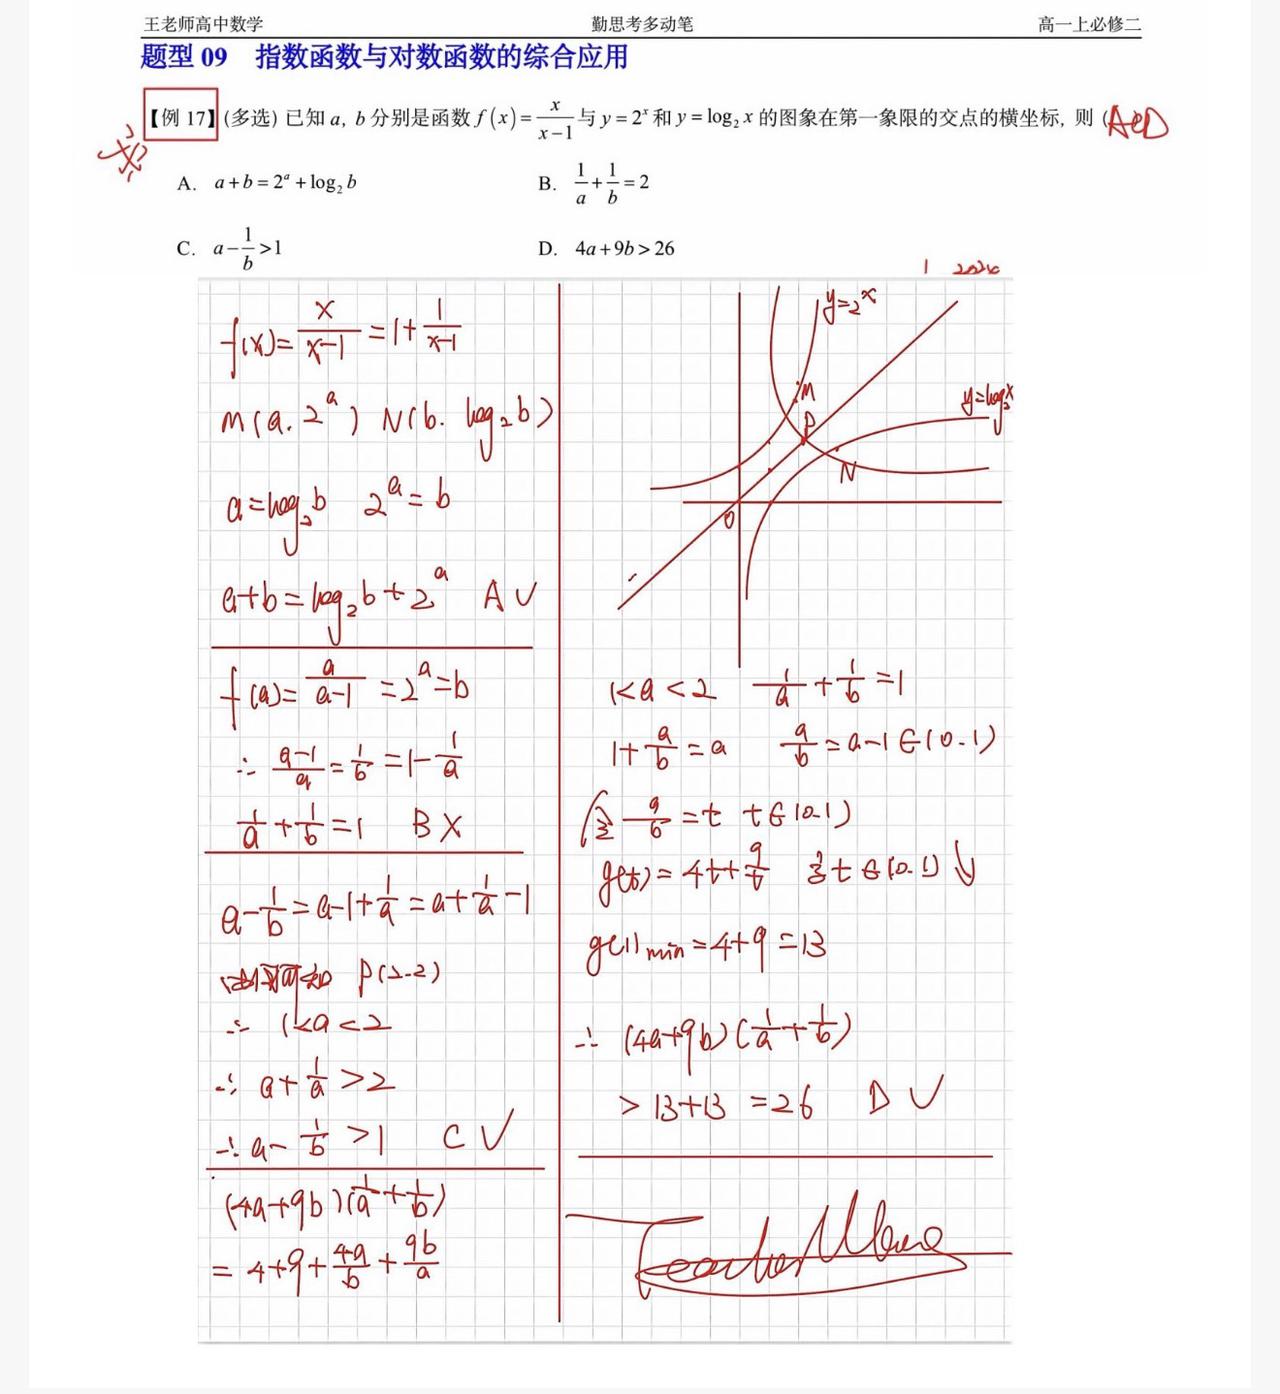 王老师高中数学 勤思考多动笔 高一上必修二
题型 09 指数函数与对数函数的综合应用
【例 17】(多选) 已知 a, b 分别是函数 f(x)=x/(x-1) 与 y=2^x 和 y=log₂x 的图象在第一象限的交点的横坐标, 则 (ACD
A. a+b=2^a+log₂b B. 1/a+1/b=2
C. a-1/b>1 D. 4a+9b>26
f(x)=x/(x-1)=1+1/(x-1)
M(a, 2^a) N(b, log₂b)
a=log₂b 2^a=b
a+b=log₂b+2^a A√
f(a)=a/(a-1)=2^a=b
∴ (a-1)/a=1/b=1-1/a
1/a+1/b=1 B×
a-1/b=a-1+1/a=a+1/a-1
可知 P(2,2)
∴ 1<a<2
∴ a+1/a>2
∴ a-1/b>1 C√
(4a+9b)(1/a+1/b)
=4+9+4a/b+9b/a
y=2^x
M
y=log₂x
P
N
O
1<a<2 1/a+1/b=1
1+a/b=a a/b=a-1∈(0,1)
令 a/b=t t∈(0,1)
g(t)=4t+9/t 当t∈(0,1)↓
g(1)min=4+9=13
∴ (4a+9b)(1/a+1/b)
>13+13=26 D√
Teacher Wang